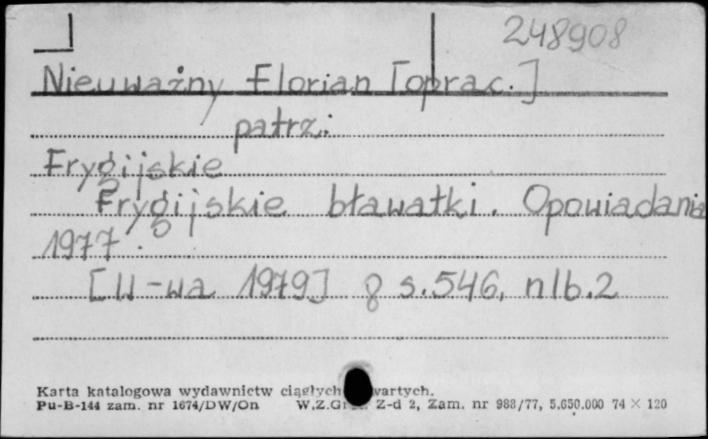 248908
Nieuważny Florian [oprac.]
patrz:
Frygijskie
Frygijskie bławatki. Opowiadania
1977.
[W-wa 1979] 8 s.546, nlb.2
Karta katalogowa wydawnictw ciągłych
Pu-B-144 zam. nr 1674/DW/On W.Z.Gr Z-d 2, Zam. nr 988/77, 5.650.000 74 × 120